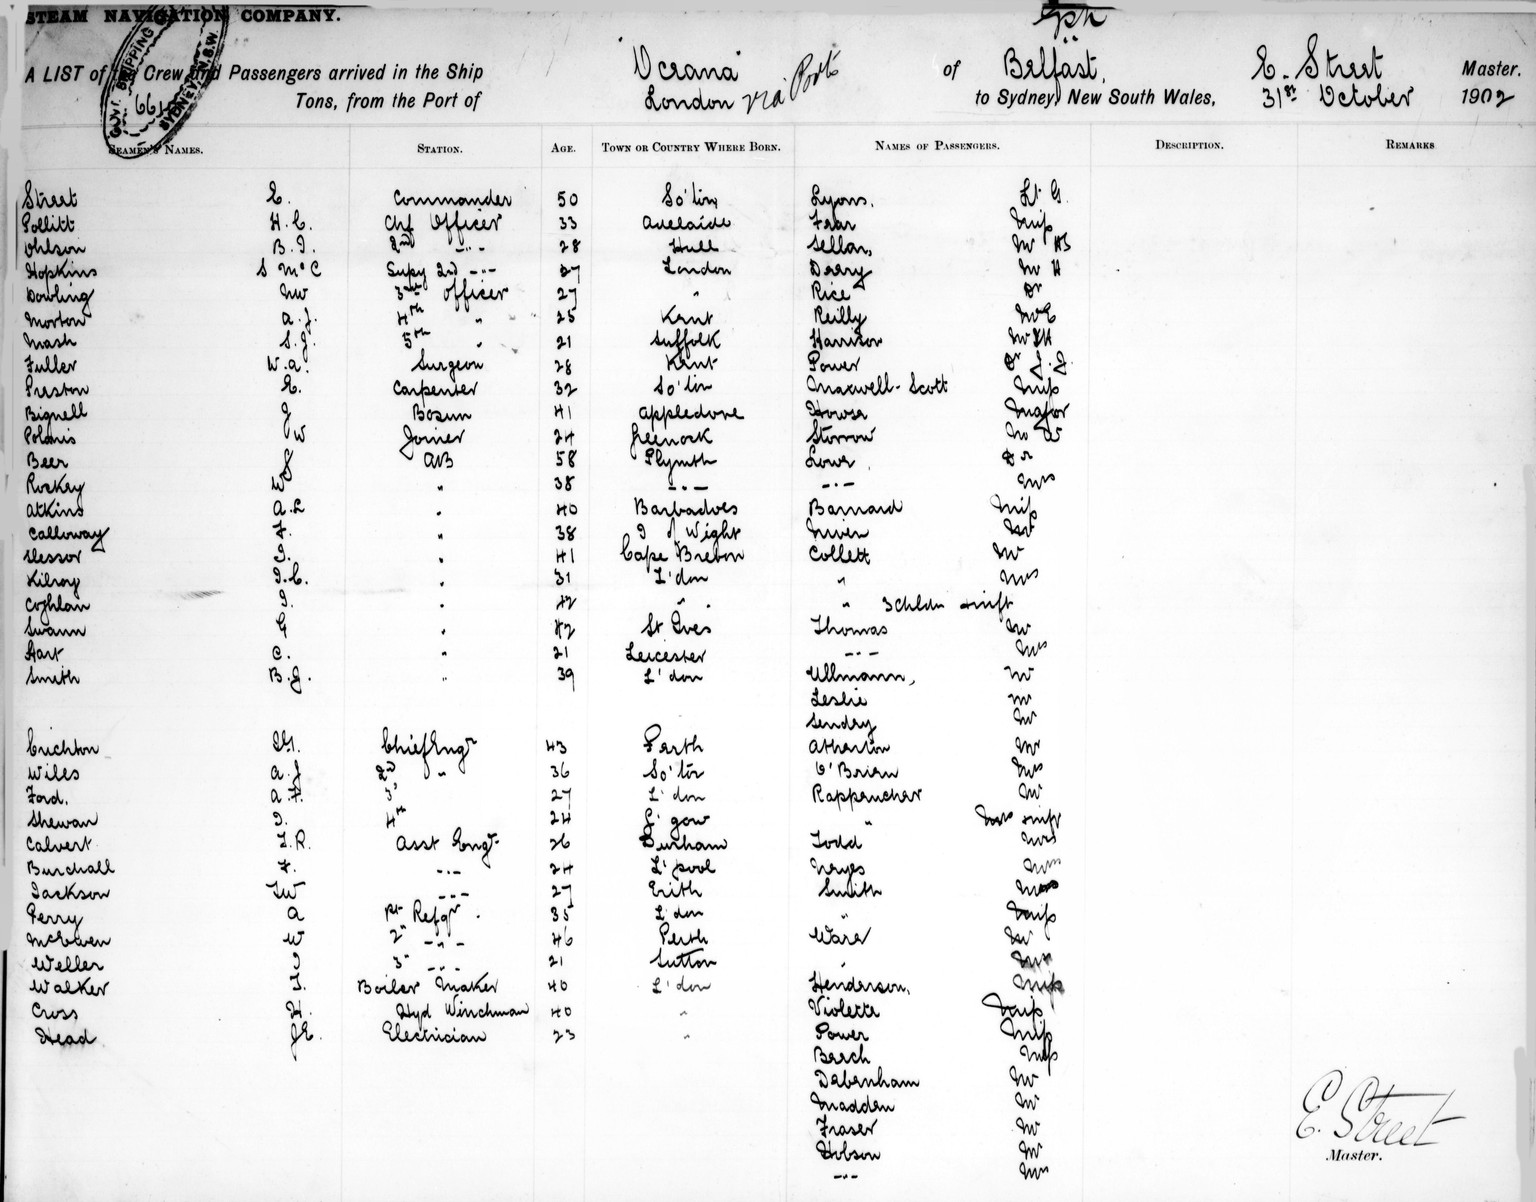 STEAM NAVIGATION COMPANY.
GOVT. SHIPPING
SYDNEY, N.S.W.
A LIST of the Crew and Passengers arrived in the Ship "Oceana" of Belfast, E. Street Master.
Tons, from the Port of London via Ports to Sydney, New South Wales, 31st October 1902
SEAMEN'S NAMES. STATION. AGE. TOWN OR COUNTRY WHERE BORN. NAMES OF PASSENGERS. DESCRIPTION. REMARKS
Street E. Commander 50 So'ton Lyons, Lt G.
Pollitt H.C. Chf Officer 33 Adelaide Frar Miss
Ohlson B.I. 2nd -"- 28 Hull Sellar, Mr
Hopkins S McC Supy 2nd -"- 27 London Deery Mr H
Dowling MW 3rd Officer 27 " Rice Dr
Morton A.J. 4th " 25 Kent Reilly Mr C
Mash S.J. 5th " 21 Suffolk Harrison Mr
Fuller W.A. Surgeon 28 Kent Power Dr
Preston E. Carpenter 32 So'ton Maxwell-Scott Miss
Bignell J Bosun 41 Appledore Howse Major
W Joiner 24 Greenock Storrow
Beer J AB 58 Plymth Lowe, Dr
Rockey W " 38 -"- -"- Mrs
Atkins A.E " 40 Barbadoes Barnard Miss
Calloway F. " 38 I of Wight Niven
Slessor I. " 41 Cape Breton Collett Mr
Kilroy I.C. " 31 L'don " Mrs
Coghlan I. " 42 " " 3 Chldn & inft
Swann G " 42 St Ives Thomas Mr
Hart C. " 21 Leicester -"- Mrs
Smith B.J. " 39 L'don Ullmann, Mr
Leslie Mr
Sendey Mr
Crichton Chief Engr 43 Perth Atherton Mr
Wiles A.J 2nd " 36 So'ton O'Brien Mrs
Ford. A.F. 3rd 27 L'don Rappeucher Mr
Shewan I. 4th 24 G'gow " Mrs & inft
Calvert T.R. Asst Engr 26 Durham Todd Mrs
Burchall F. -"- 24 L'pool Neyes
Jackson TW -"- 27 Erith Smith
Perry A Refgr. 35 L'don " Miss
McEwen W 2" -"- 46 Perth Ware Mr
Weller J 3" -"- 21 Sutton " Mrs
Walker T. Boiler Maker 40 L'don Henderson, Miss
Cross H. Hyd Winchman 40 " Violette Miss
Head J.E. Electrician 23 " Power Miss
Beech Miss
Debenham Mr
Madden Mr
Fraser Mr
Hobson Mr
-"- Mrs
E. Street
Master.